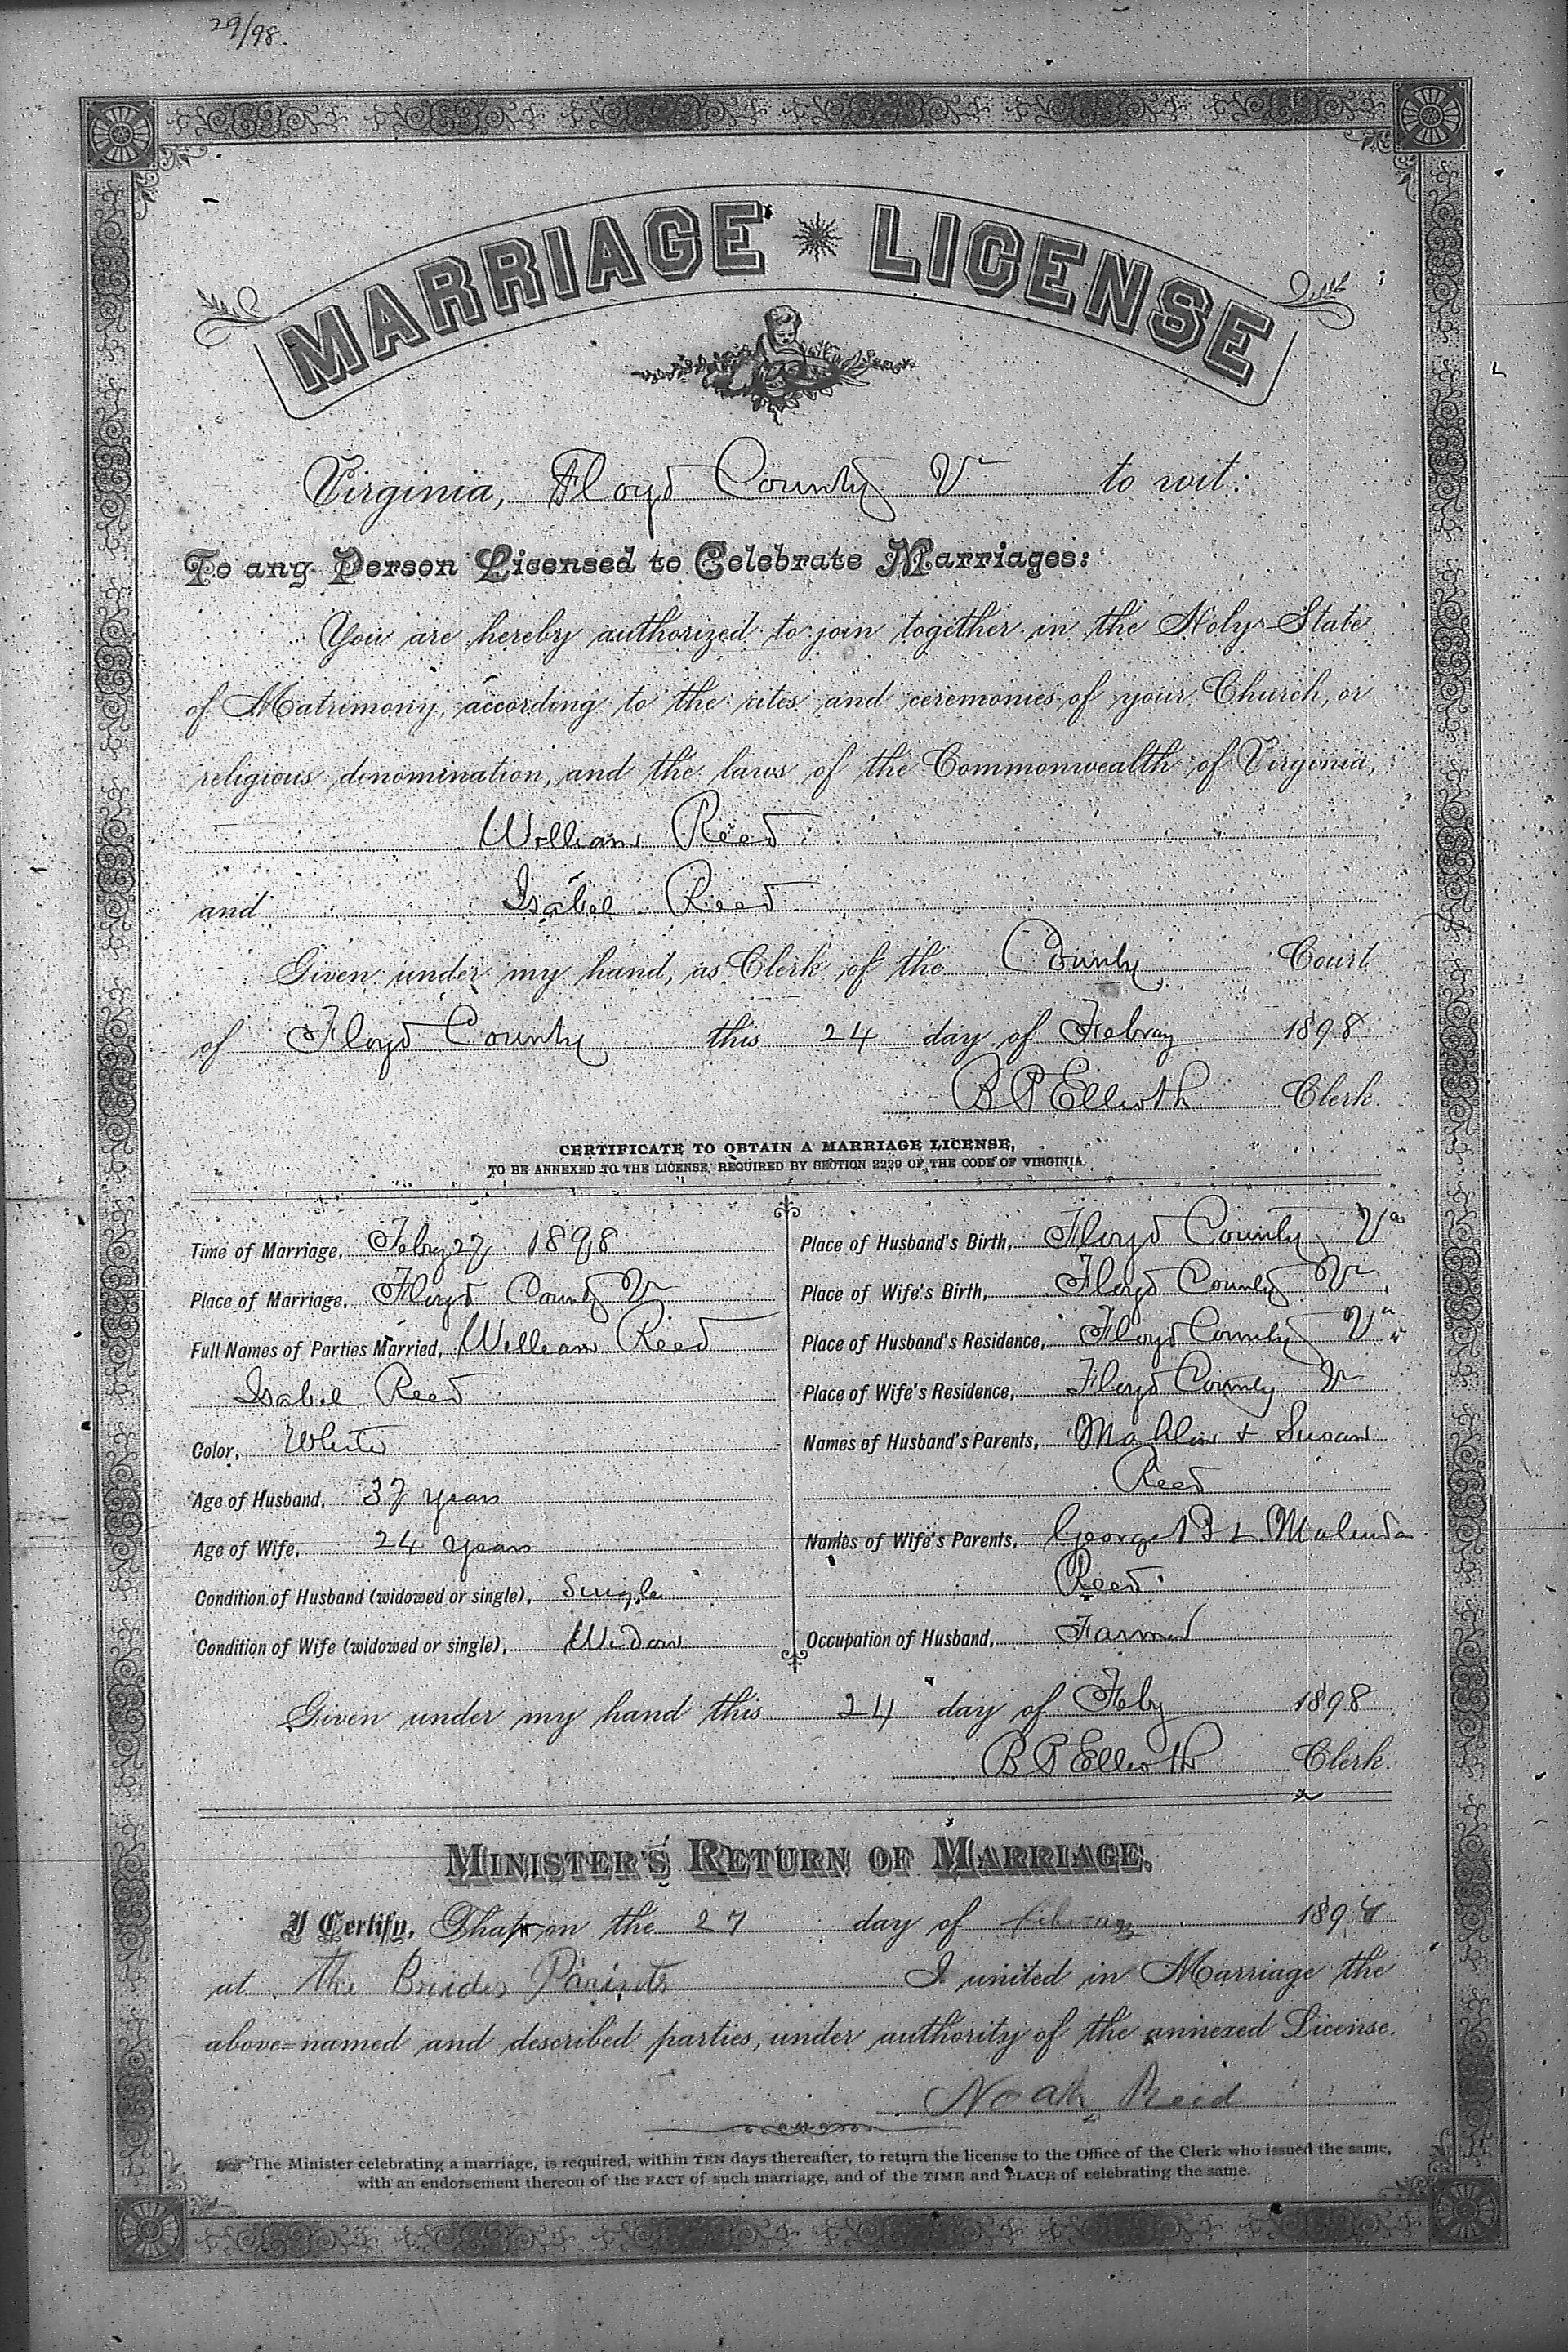 29/98.
MARRIAGE LICENSE
Virginia, Floyd County Va to wit:
To any Person Licensed to Celebrate Marriages:
You are hereby authorized to join together in the Holy State
of Matrimony, according to the rites and ceremonies of your Church, or
religious denomination, and the laws of the Commonwealth of Virginia,
William Reed
and Isabel Reed
Given under my hand, as Clerk of the County Court
of Floyd County this 24 day of Febray 1898
B P Ellioth Clerk.
CERTIFICATE TO OBTAIN A MARRIAGE LICENSE,
TO BE ANNEXED TO THE LICENSE, REQUIRED BY SECTION 2229 OF THE CODE OF VIRGINIA.
Time of Marriage, Febry 27 1898
Place of Marriage, Floyd County Va
Full Names of Parties Married, William Reed
Isabel Reed
Color, White
Age of Husband, 37 years
Age of Wife, 24 years
Condition of Husband (widowed or single), Single
Condition of Wife (widowed or single), Widow
Place of Husband's Birth, Floyd County Va
Place of Wife's Birth, Floyd County Va
Place of Husband's Residence, Floyd County Va
Place of Wife's Residence, Floyd County Va
Names of Husband's Parents, Mahlon & Susan
Reed
Names of Wife's Parents, George P & Malinda
Reed
Occupation of Husband, Farmer
Given under my hand this 24 day of Feby 1898
B P Ellioth Clerk.
MINISTER'S RETURN OF MARRIAGE.
I Certify, That on the 27 day of 1898
at the Brides Parints I united in Marriage the
above-named and described parties, under authority of the annexed License.
Noah Reed
The Minister celebrating a marriage, is required, within TEN days thereafter, to return the license to the Office of the Clerk who issued the same,
with an endorsement thereon of the FACT of such marriage, and of the TIME and PLACE of celebrating the same.